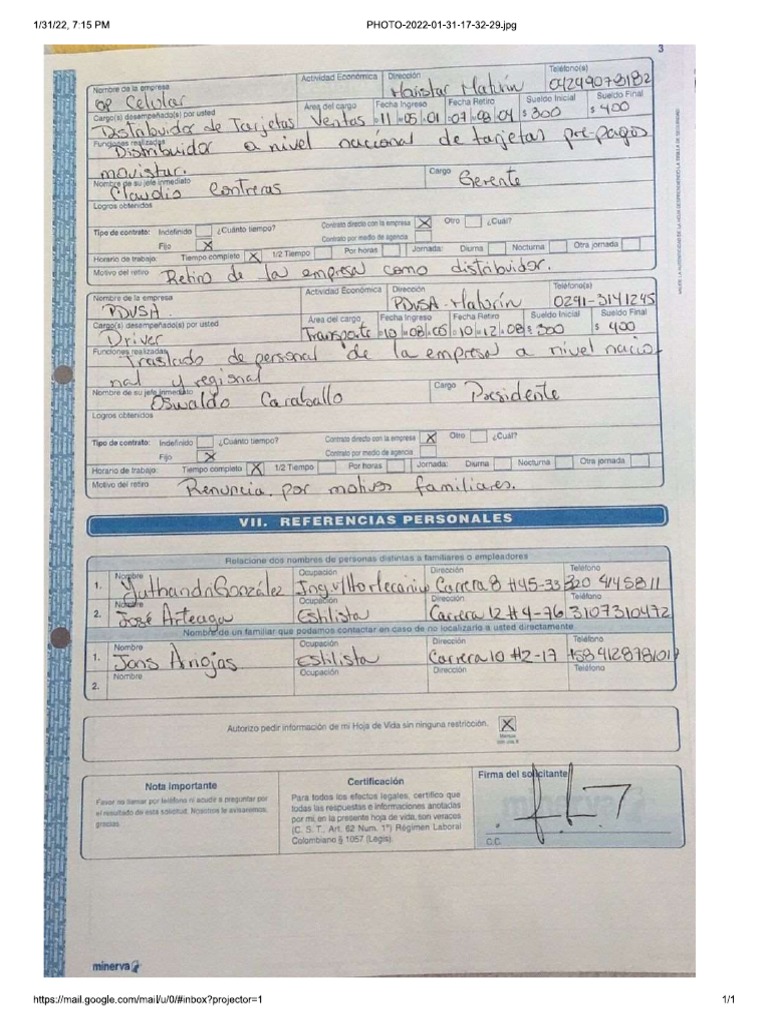 1/31/22, 7:15 PM PHOTO-2022-01-31-17-32-29.jpg
3
Nombre de la empresa Actividad Económica Dirección Teléfono(s)
Celular Movistar Maturín 04249078182
Cargo(s) desempeñado(s) por usted Area del cargo Fecha Ingreso Fecha Retiro Sueldo Inicial Sueldo Final
Distribuidor de Tarjetas Ventas 11 05 01 07 09 04 $ 300 $ 400
Funciones realizadas
Distribuidor a nivel nacional de tarjetas pre-pagos
movistar.
Nombre de su jefe inmediato Cargo
Claudio Contreras Gerente
Logros obtenidos
Tipo de contrato: Indefinido ¿Cuánto tiempo? Contrato directo con la empresa X Otro ¿Cuál?
Fijo X Contrato por medio de agencia
Horario de trabajo: Tiempo completo X 1/2 Tiempo Por horas Jornada: Diurna Nocturna Otra jornada
Motivo del retiro
Retiro de la empresa como distribuidor.
Nombre de la empresa Actividad Económica Dirección Teléfono(s)
PDVSA. PDVSA-Maturín 0291-3141245
Cargo(s) desempeñado(s) por usted Area del cargo Fecha Ingreso Fecha Retiro Sueldo Inicial Sueldo Final
Driver Transporte 10 08 06 10 12 08 $ 300 $ 400
Funciones realizadas
Traslado de personal de la empresa a nivel nacio-
nal y regional
Nombre de su jefe inmediato Cargo
Oswaldo Caraballo Presidente
Logros obtenidos
Tipo de contrato: Indefinido ¿Cuánto tiempo? Contrato directo con la empresa X Otro ¿Cuál?
Fijo X Contrato por medio de agencia
Horario de trabajo: Tiempo completo X 1/2 Tiempo Por horas Jornada: Diurna Nocturna Otra jornada
Motivo del retiro
Renuncia por motivos familiares.
VII. REFERENCIAS PERSONALES
Relacione dos nombres de personas distintas a familiares o empleadores
Nombre Ocupación Dirección Teléfono
1. González Carrera 8 #45-33 320 4145811
Nombre Ocupación Dirección Teléfono
2. José Arteaga Estilista Carrera 12 #4-76 3107310472
Nombre de un familiar que podamos contactar en caso de no localizarlo a usted directamente
Nombre Ocupación Dirección Teléfono
1. Estilista Carrera 10 #2-17
Nombre Ocupación Dirección Teléfono
2.
Autorizo pedir información de mi Hoja de Vida sin ninguna restricción. X
Marque con una X
Nota importante
Favor no llamar por teléfono ni acudir a preguntar por
el resultado de esta solicitud. Nosotros le avisaremos,
gracias.
Certificación
Para todos los efectos legales, certifico que
todas las respuestas e informaciones anotadas
por mí, en la presente hoja de vida, son veraces
(C. S. T., Art. 62 Num. 1°) Régimen Laboral
Colombiano § 1057 (Legis).
Firma del solicitante
C.C.
minerva
https://mail.google.com/mail/u/0/#inbox?projector=1 1/1